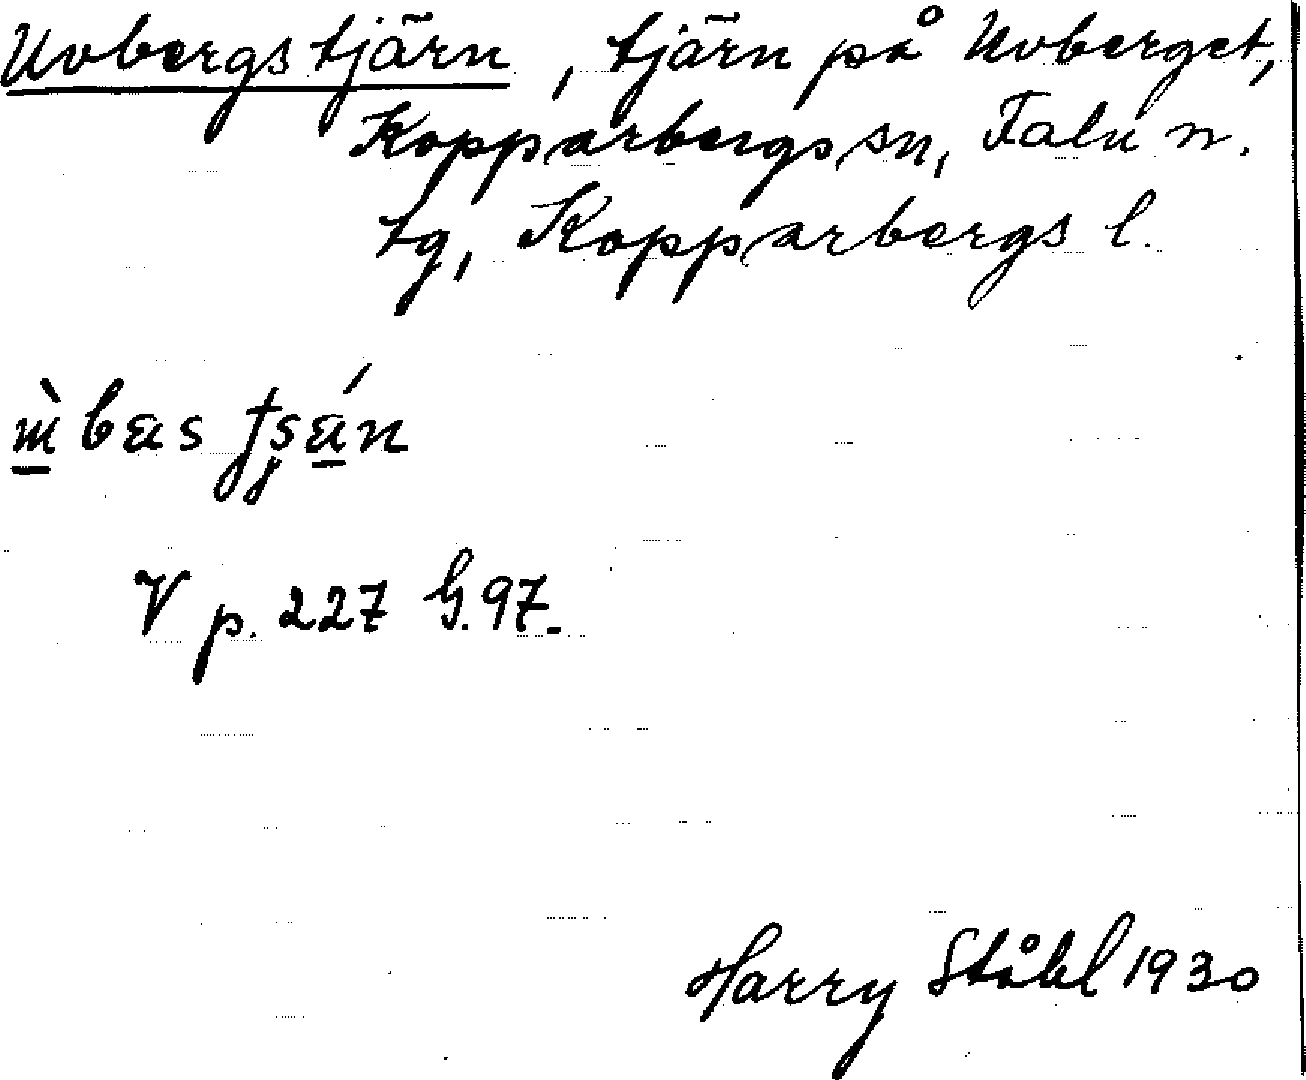 Uvbergstjärn, tjärn på Uvberget,
Kopparbergs sn, Falu n.
tg, Kopparbergs l.
V p. 227 G.97.
Harry Ståhl 1930